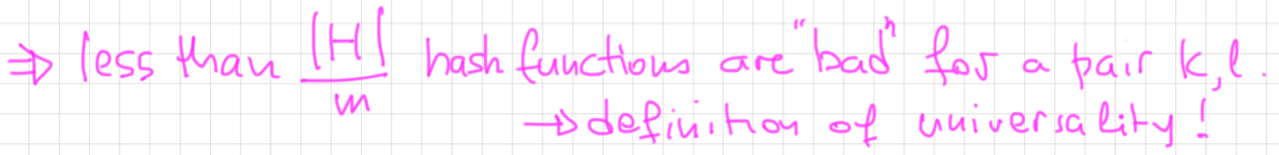 ⇒ less than |H|/m hash functions are "bad" for a pair k,l.
→ definition of universality!